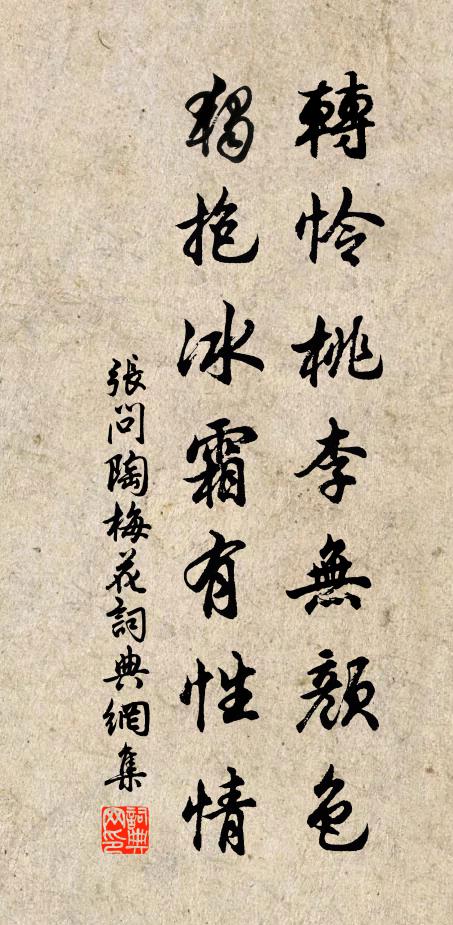 轉怜桃李無顏色
獨抱冰霜有性情
張問陶梅花詞典網集
詞典网印